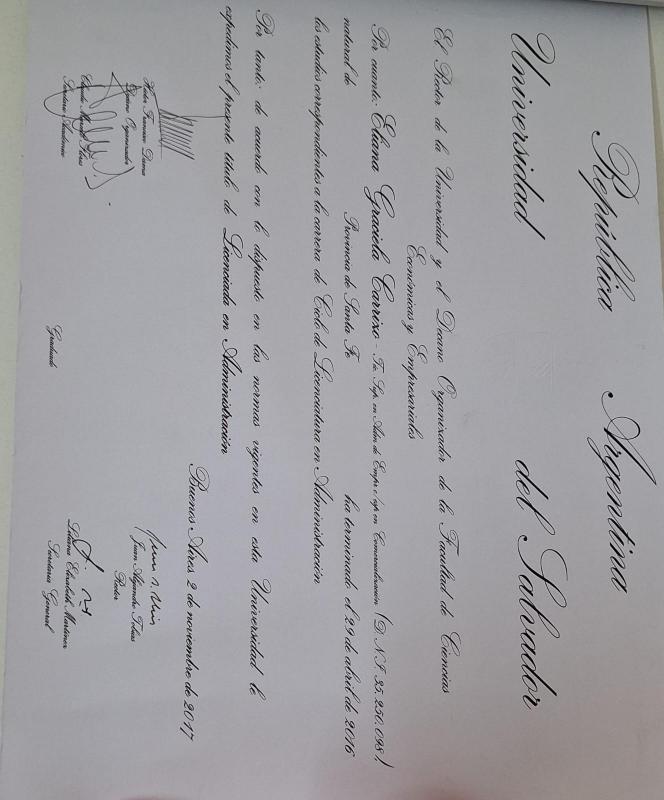 República Argentina
Universidad del Salvador
El Rector de la Universidad y el Decano Organizador de la Facultad de Ciencias
Económicas y Empresariales
Por cuanto: Eliana Graciela Carrizo - Téc. Sup. en Adm. de Empr. c/esp. en Comercialización (D.N.I. 35.250.098)
natural de Provincia de Santa Fe ha terminado el 29 de abril de 2016
los estudios correspondientes a la carrera de Ciclo de Licenciatura en Administración
Por tanto: de acuerdo con lo dispuesto en las normas vigentes en esta Universidad le
expedimos el presente título de Licenciada en Administración
Buenos Aires 2 de noviembre de 2017
Héctor Francisco Dama
Decano Organizador
Secretario Académico
Juan Alejandro Tobías
Rector
Liliana Elisabeth Martínez
Secretaria General
Graduado